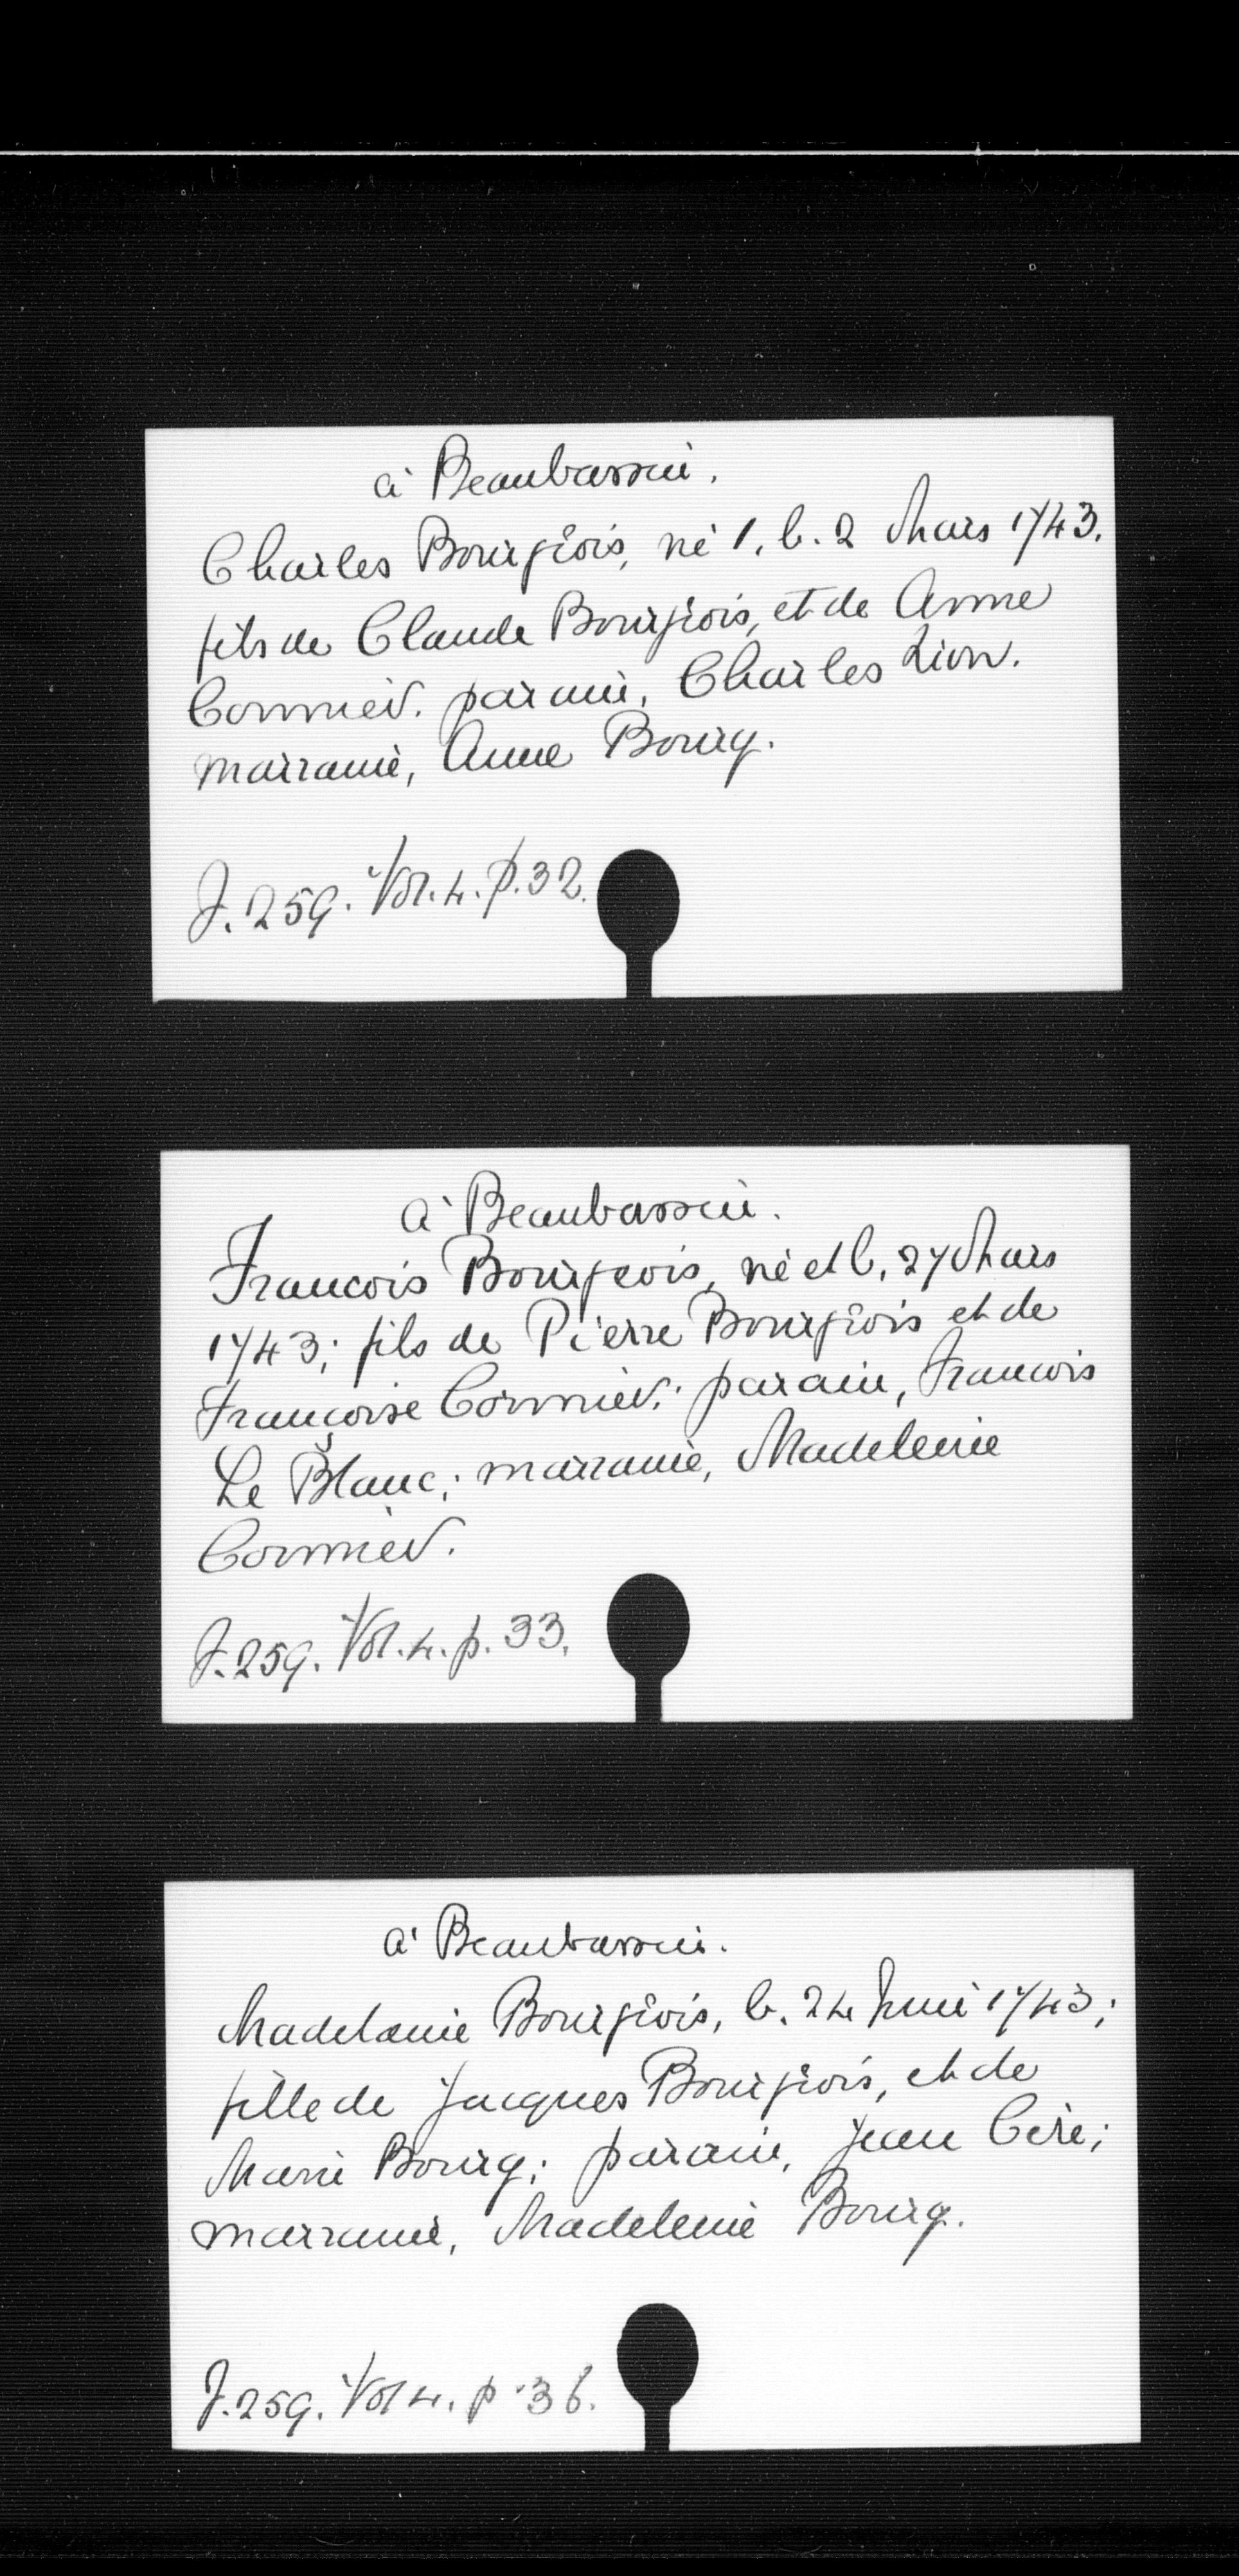 à Beaubassin.
Charles Bourgeois, né 1. b. 2 Mars 1743.
fils de Claude Bourgeois, et de Anne
Cormier. parain, Charles Lion.
marraine, Anne Bourg.
J. 259. Vol. 4. p. 32.
à Beaubassin.
Francois Bourgeois, né et b. 27 Mars
1743; fils de Pierre Bourgeois et de
Françoise Cormier; parain, Francois
Le Blanc; marraine, Madeleine
Cormier.
J. 259. Vol. 4. p. 33.
à Beaubassin.
Madelaine Bourgeois, b. 24 Juin 1743;
fille de Jacques Bourgeois, et de
Marie Bourg; parain, Jean Cire;
marraine, Madeleine Bourg.
J. 259. Vol 4. p. 36.